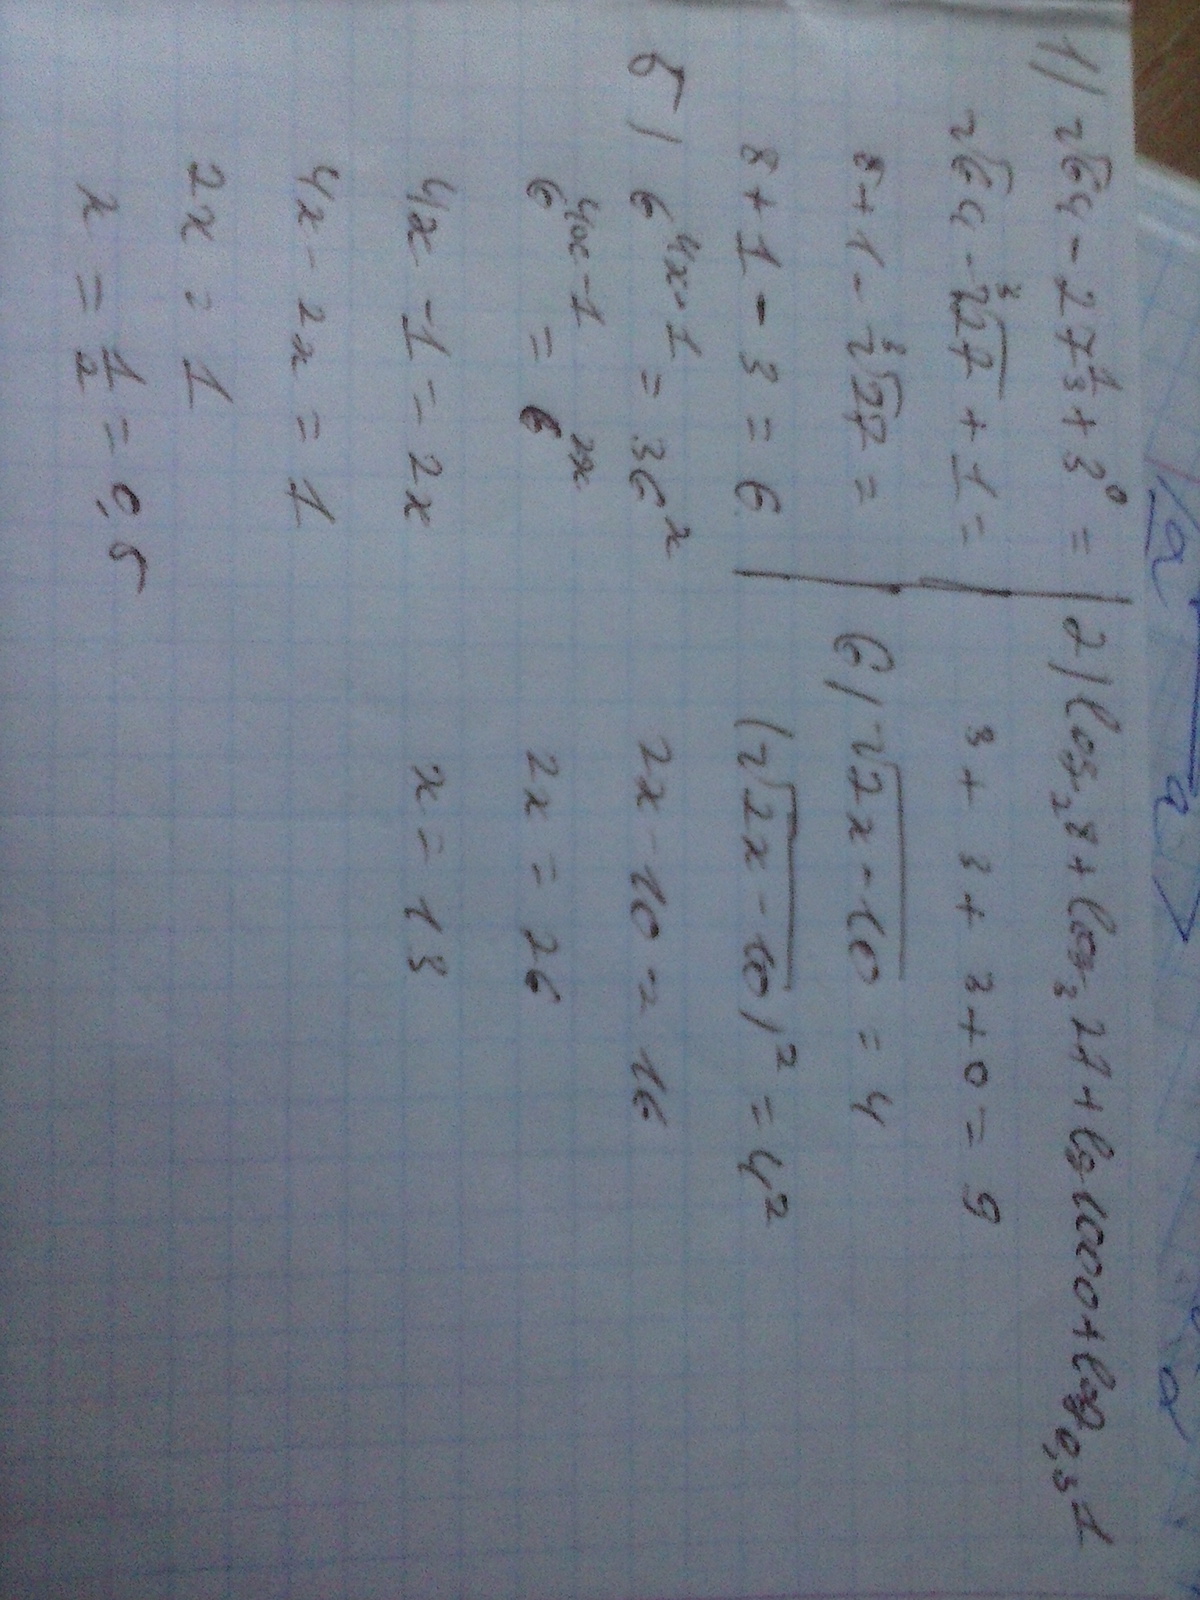 1) √64 - 27^(1/3) + 3^0 =
√64 - ³√27 + 1 =
8 + 1 - ³√27 =
8 + 1 - 3 = 6
2) log₂8 + log₃27 + lg 1000 + log₀,₃1
3 + 3 + 3 + 0 = 9
5) 6^(4x-1) = 36^x
6^(4x-1) = 6^(2x)
4x - 1 = 2x
4x - 2x = 1
2x = 1
x = 1/2 = 0,5
6) √(2x-10) = 4
(√(2x-10))² = 4²
2x - 10 = 16
2x = 26
x = 13